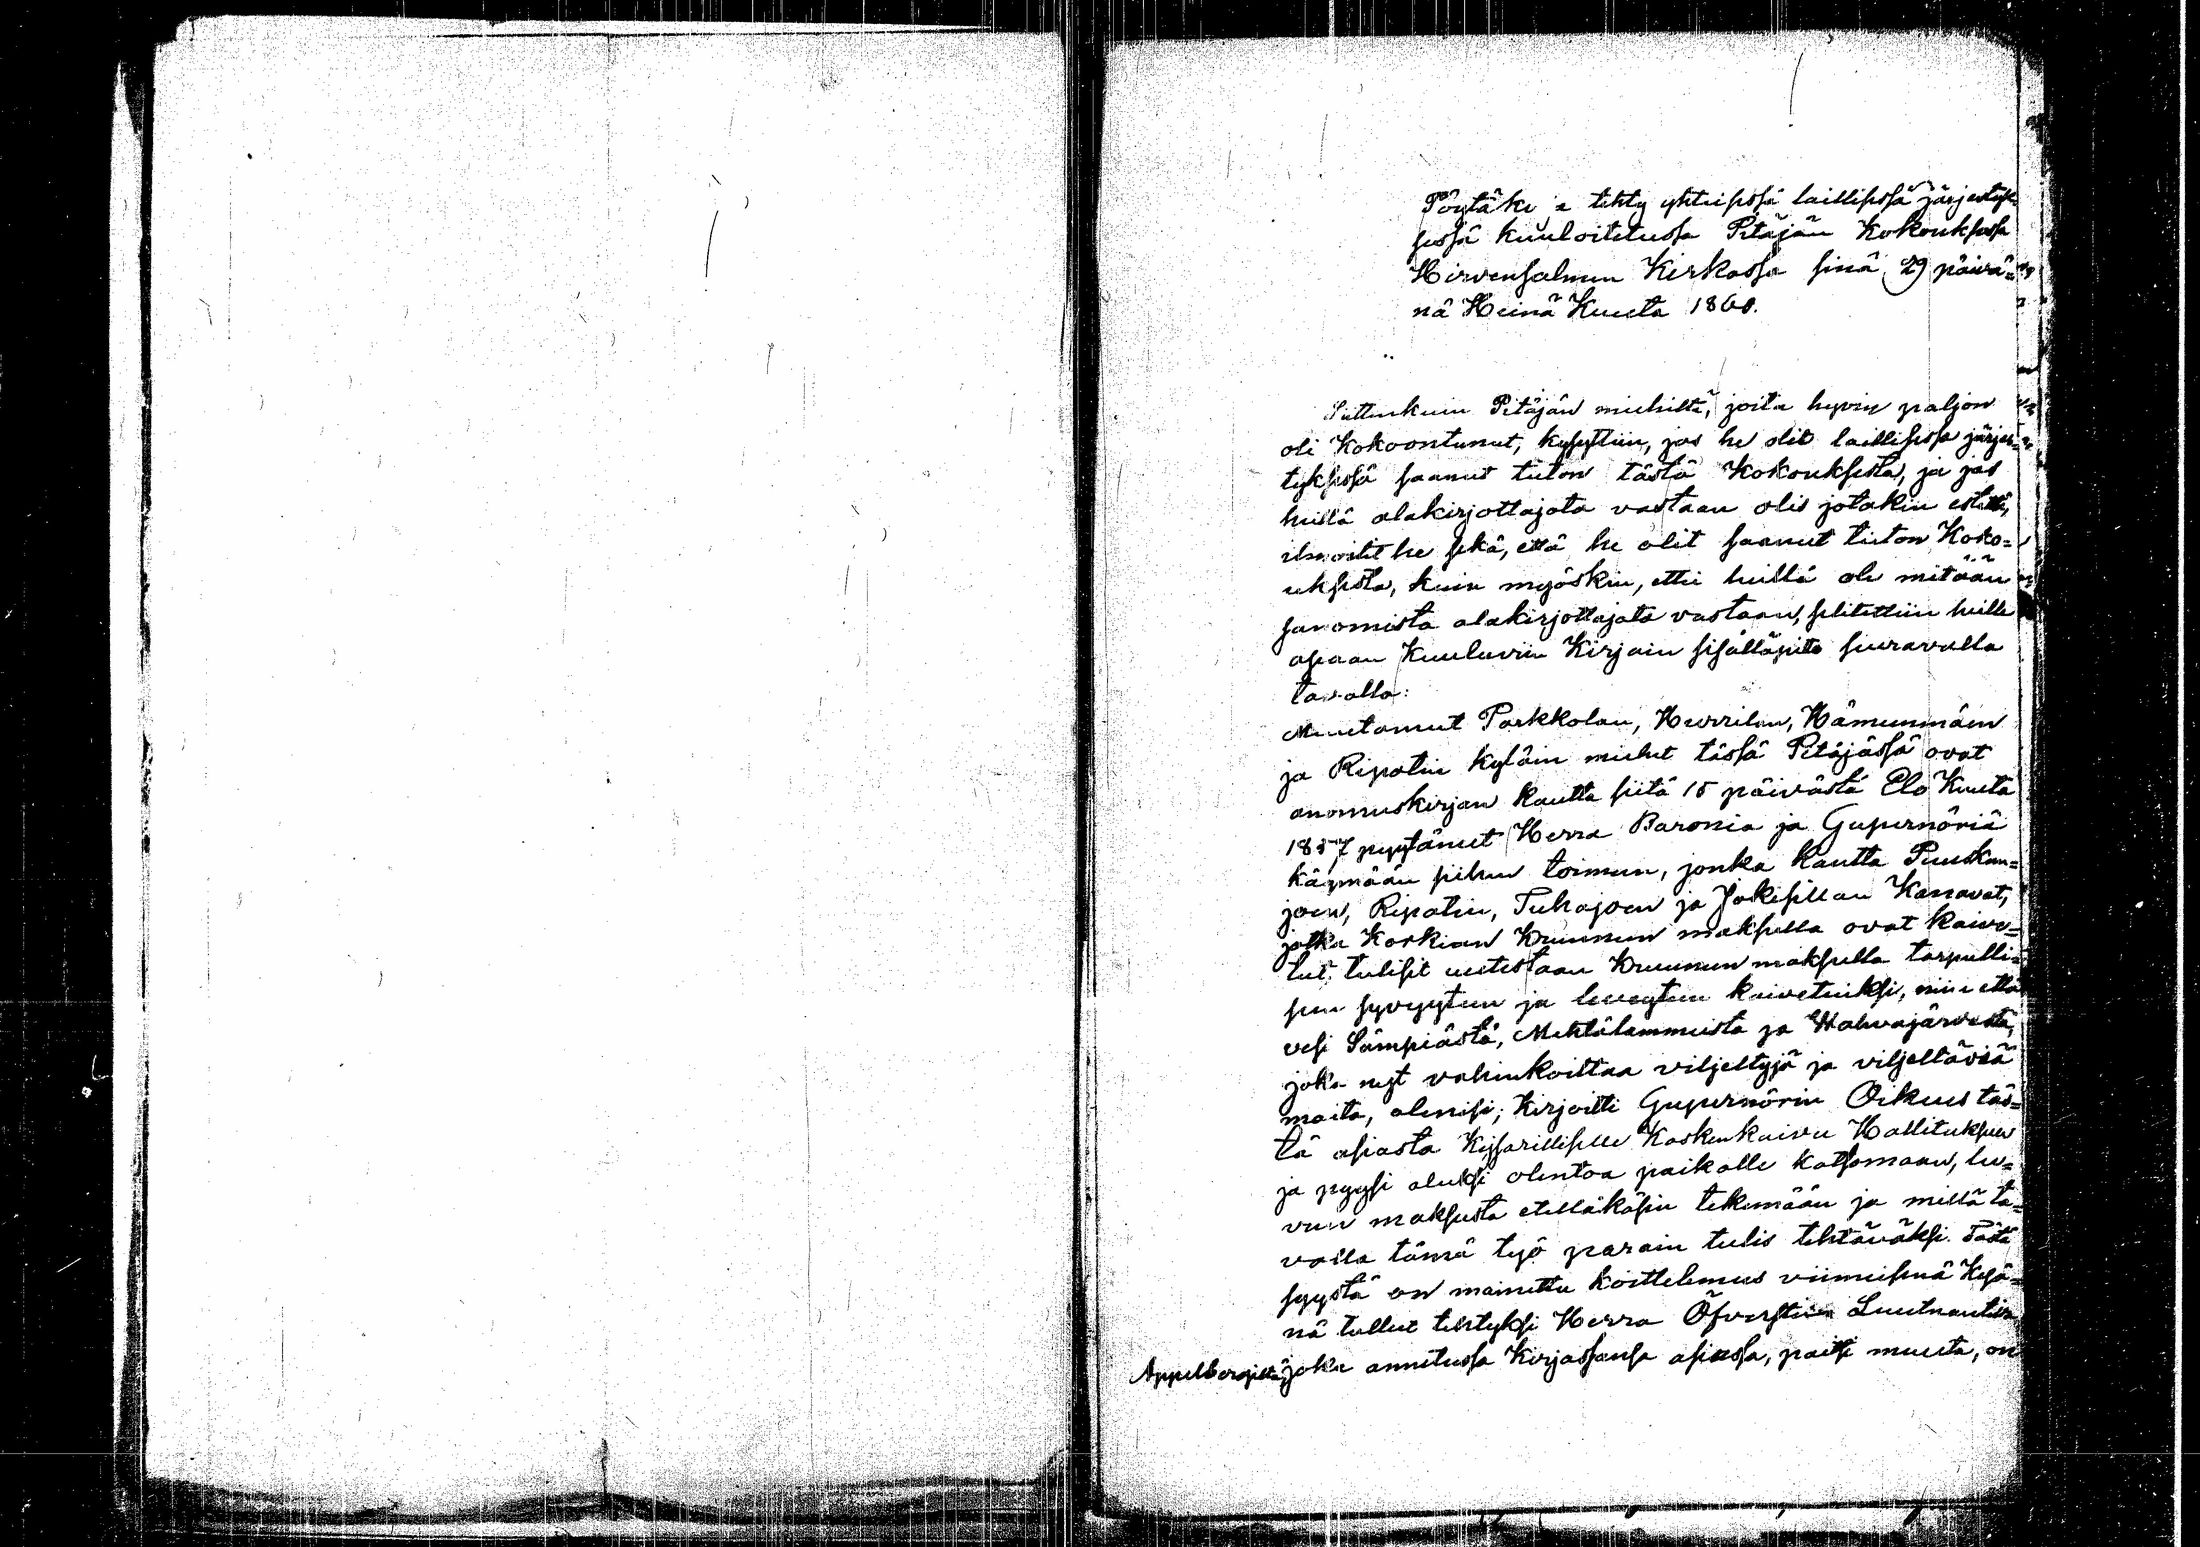 Pöytäki a tehty yhteisessä laillisessa järjestyk-
sessä kuuloitetussa Pitäjän Kokouksessa
Hirvensalmen Kirkossa sinä 29 päivä=
nä Heinä Kuuta 1860.
Sittenkuin Pitäjän miehiltä, joita hyvin paljon
oli Kokoontunut, kysyttiin, jos he olit laillisessa järjes=
tyksessä saanut tieton tästä Kokouksesta, ja jos
heillä alakirjottajata vastaan olis jotakin estettä,
ilmoitit he sekä, että he olit saanut tieton Koko=
uksesta, kuin myöskin, ettei heillä ole mitään
sanomista alakirjottajata vastaan, selitettiin heille
asiaan Kuuluvien Kirjain sisälläpito seuraavalla
tavalla:
Muutamat Parkkolan, Hurrilan, Hämeenmäen
ja Ripatin kyläin miehet tässä Pitäjässä ovat
anomuskirjan kautta siitä 15 päivästä Elo Kuuta
1857 pyytäneet Herra Baronia ja Gupernöriä
käymään siihen toimeen, jonka kautta Puuskan=
joen, Ripatin, Tuhajoen ja Jokisillan Kanavat,
jotka Korkian Kruunun maksulla ovat kaive=
tut, tulisit uutestaan Kruunun maksulla tarpeelli=
seen syvyyteen ja leveyteen kaivetuiksi, niin että
vesi Sämpiästä, Mehtälammista ja Wahvajärvestä,
joka nyt vahinkoittaa viljeltyjä ja viljeltäviä
maita, alenisi; Kirjoitti Gupernörin Oikeus täs=
tä asiasta Kejsarilliselle Koskenkaivu Hallitukselle
ja pyysi aluksi olentoa paikalle katsomaan, lu=
vun maksusta etelläkäsin tekemään ja millä ta=
valla tämä työ parain tulis tehtäväksi. Tästä
syystä on mainittu koittelemus viimeisenä Kesä=
nä tullut tehtyksi Herra Öfverstin Luutnantilta
Appelbergiltä, joka annetussa Kirjassansa asiassa, paitsi muuta, on